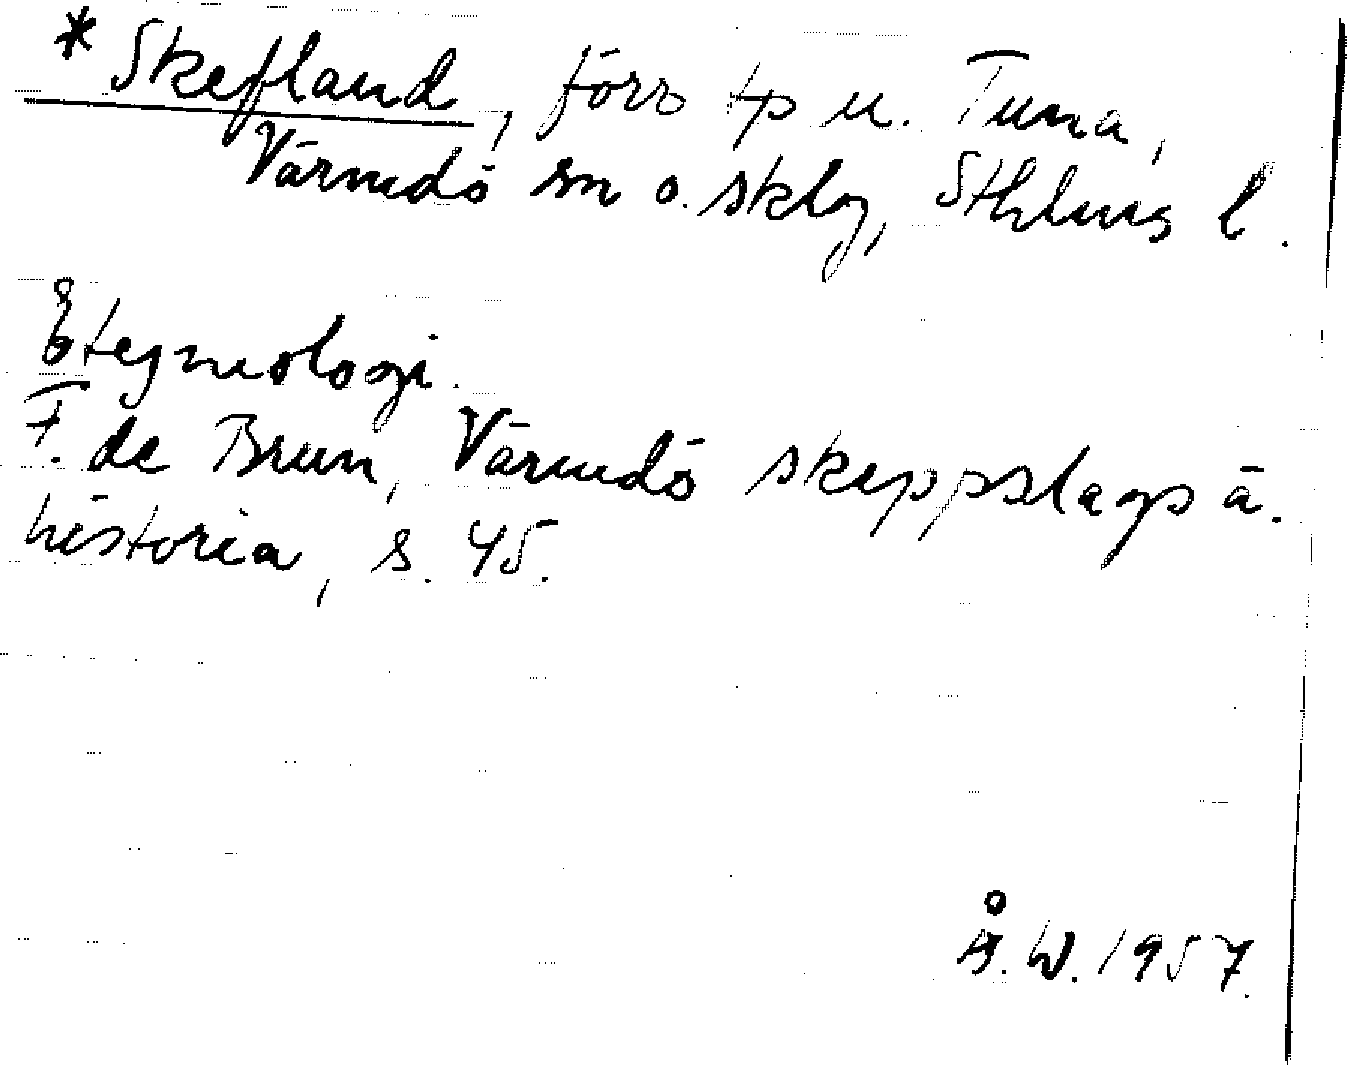 * Skefland, förr tp u. Tuna,
Värmdö sn o. sklg, Sthlms l.
Etymologi.
F. de Brun, Värmdö skeppslags ä.
historia, s. 45.
Å. W. 1957.